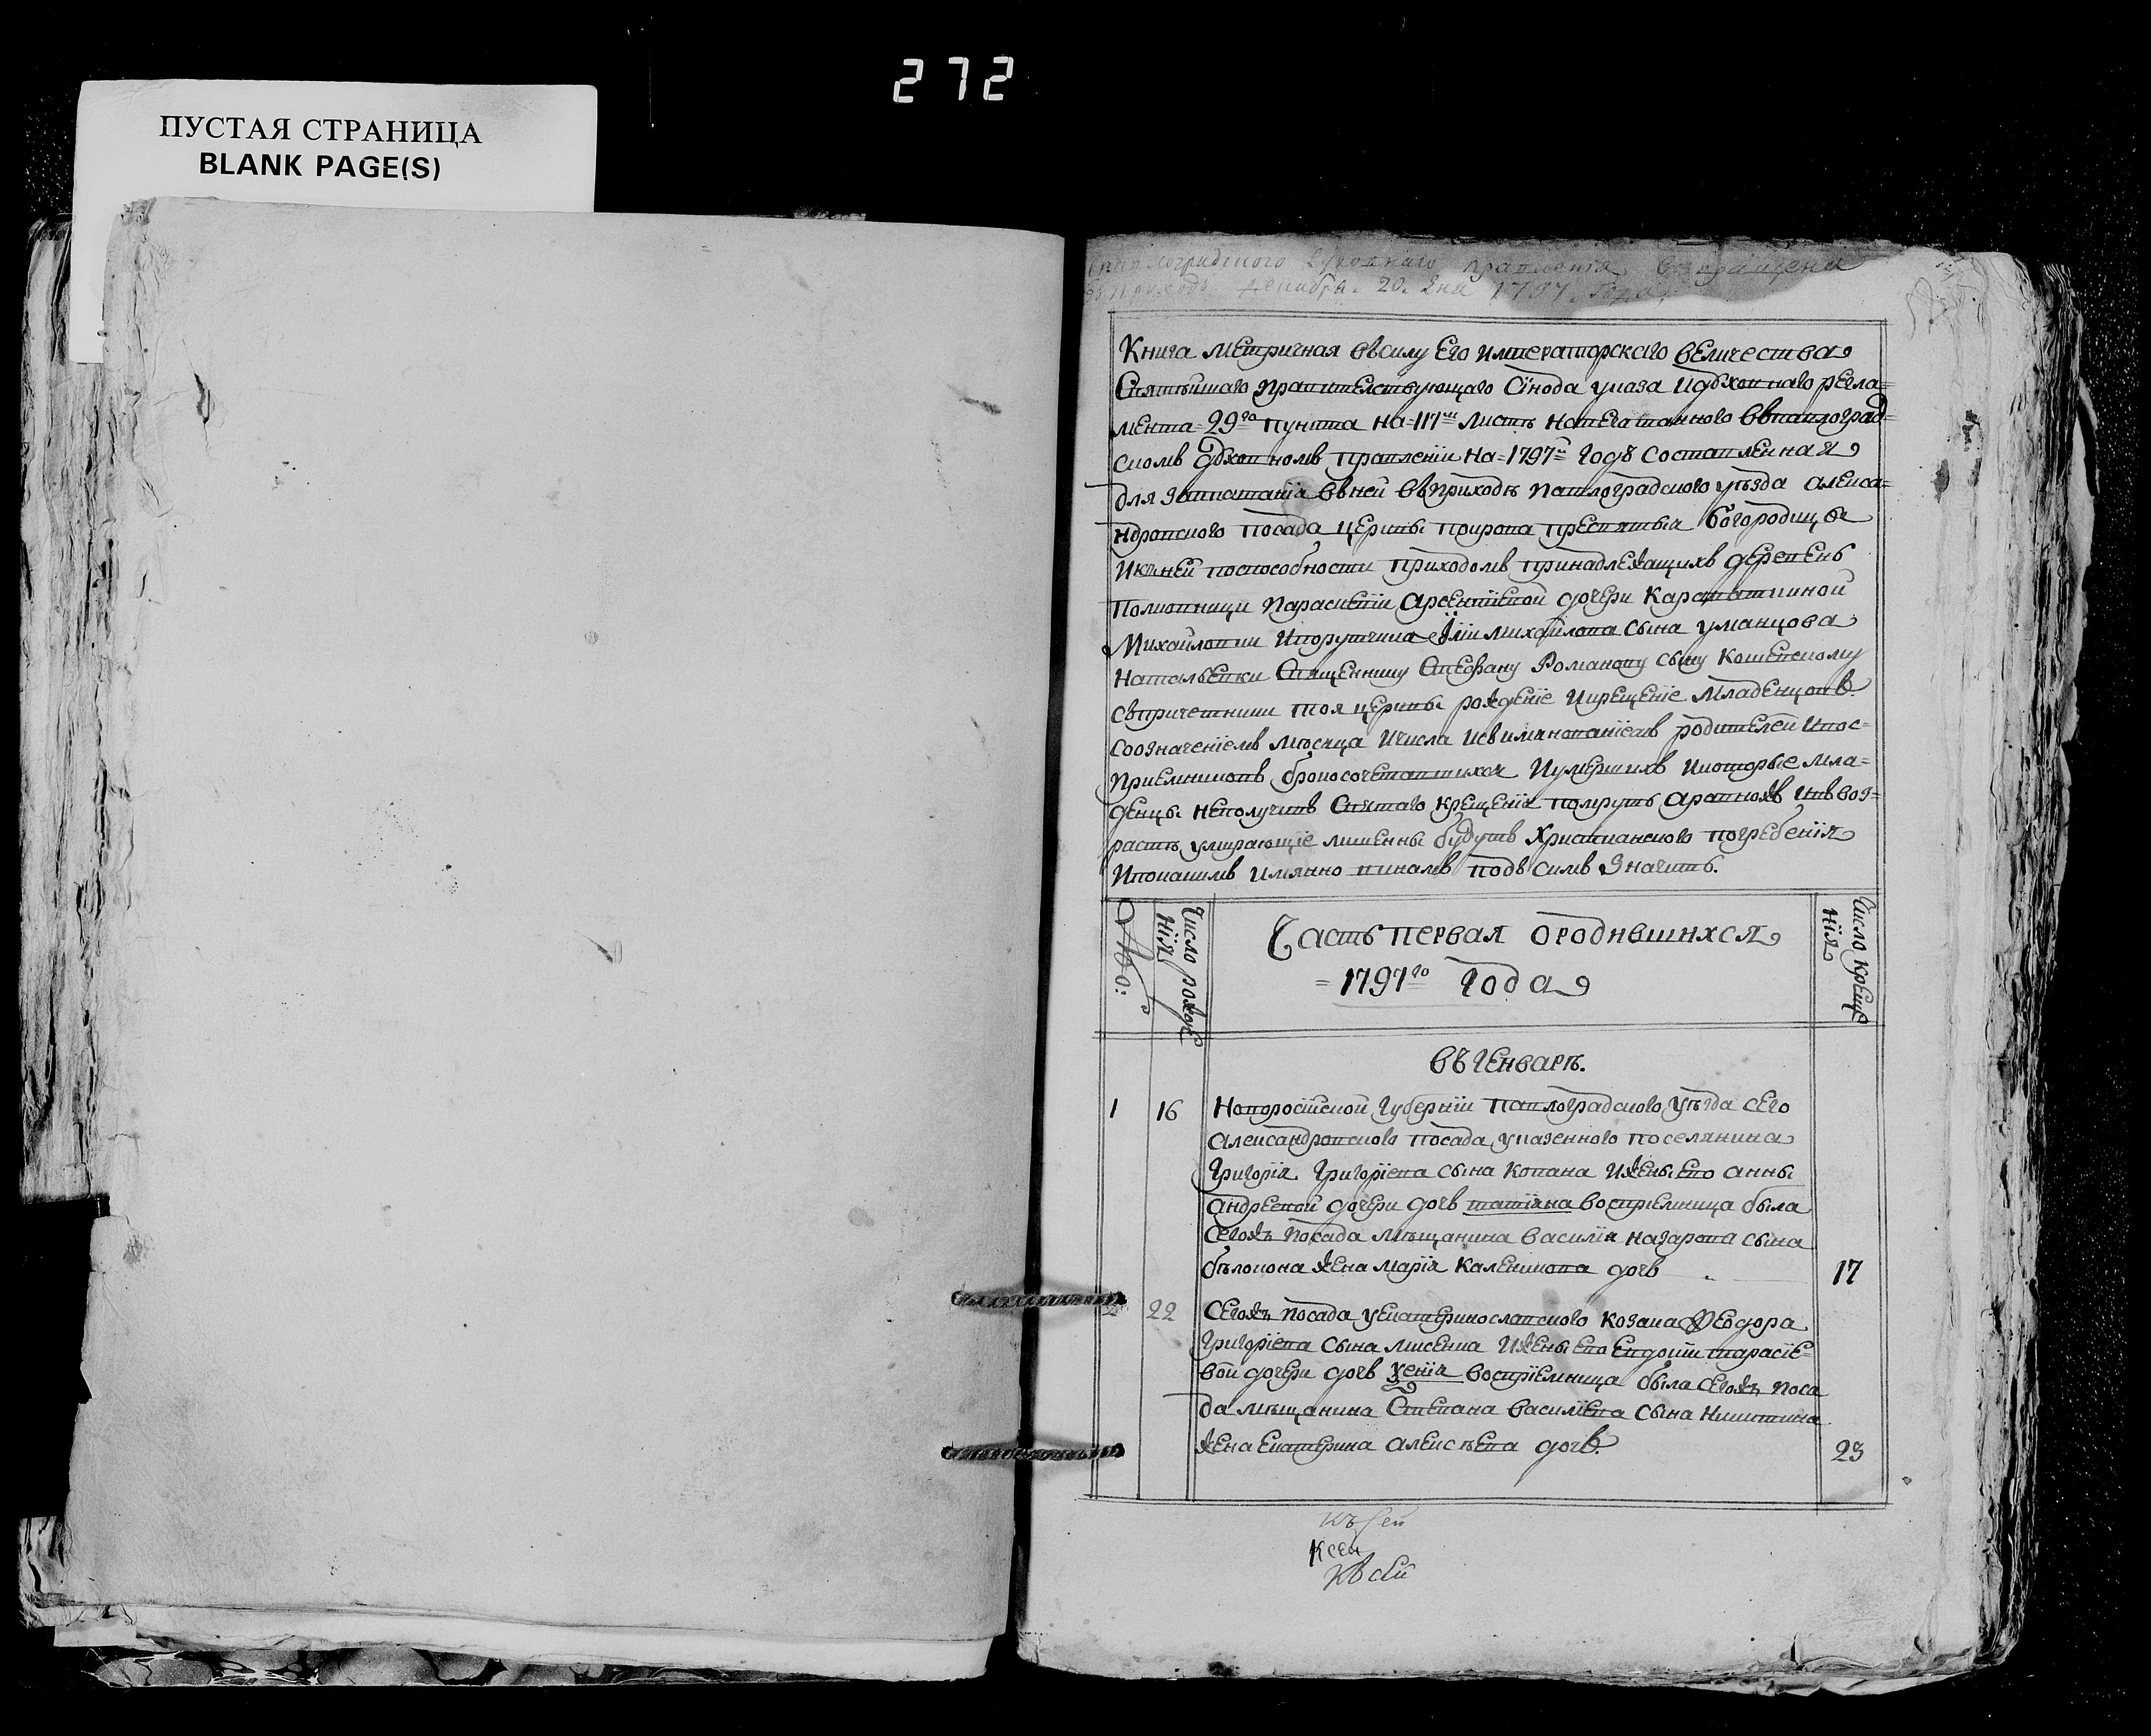 272
ПУСТАЯ СТРАНИЦА
BLANK PAGE(S)
Духовнаго правления
въ приходъ декабря 20 дня 1797 года
Книга метричная въ силу Его Императорскаго Величества
Святѣйшаго Правителствующаго Сѵнода указа и дӯховнаго регла=
мента 29го пункта на 117м листѣ напечатанного въ Павлоград=
скомъ дӯховномъ правленїи на 1797й годъ составленная
для записанїя въ ней въ приходѣ Павлоградского уѣзда Алекса=
ндровского посада церквы покрова пресвятыя богородицы
и къ ней по способности приходомъ принадлежащихъ деревень
полковници Параскевїи Арсентїевой дочери
Михайловки и порутчика Ильи Михайлова сына Уманцова
Натальевки Священнику Стефану Романову сыну Кошевскому
съ причетники тоя церквы рожденїе и крещенїе младенцовъ
со означенїемъ мѣсяца и числа и съ имянованїемъ родителей и вос=
приемниковъ бракосочетавшихся и умершихъ и которые мла=
денцы не получивъ Святаго крещенїя помрутъ а равножъ и въ воз=
растѣ умирающїе лишенны будутъ Христианского погребенїя
и по какимъ имянно винамъ подъ симъ значитъ.
Число рожде
нїя
Часть первая о родившихся
= 1797го года
Число креще
нїя
въ генварѣ.
1 16 Новоросїйской Губернїи Павлоградского уѣзда сего
Александровского посада указенного поселянина
Григорїя Григорїева сына Копана и жены его Анны
Андреевой дочери дочь Татїяна восприемница была
сегожъ посада мѣщанина Василїя Назарова сына
Бѣлоконя жена Марїя дочь 17
2 22 Сегожъ посада у Екатеринославского козака Ѳеодора
Григорїева сына Лисенка и жены его Евдокїи Тарасїе=
вой дочери дочь Ѯенїя воспрїемница была сегожъ поса
да мѣщанина Степана Василїева сына Никитина
жена Екатерина Алексѣева дочь. 23
къ сей
ксей
къ сей